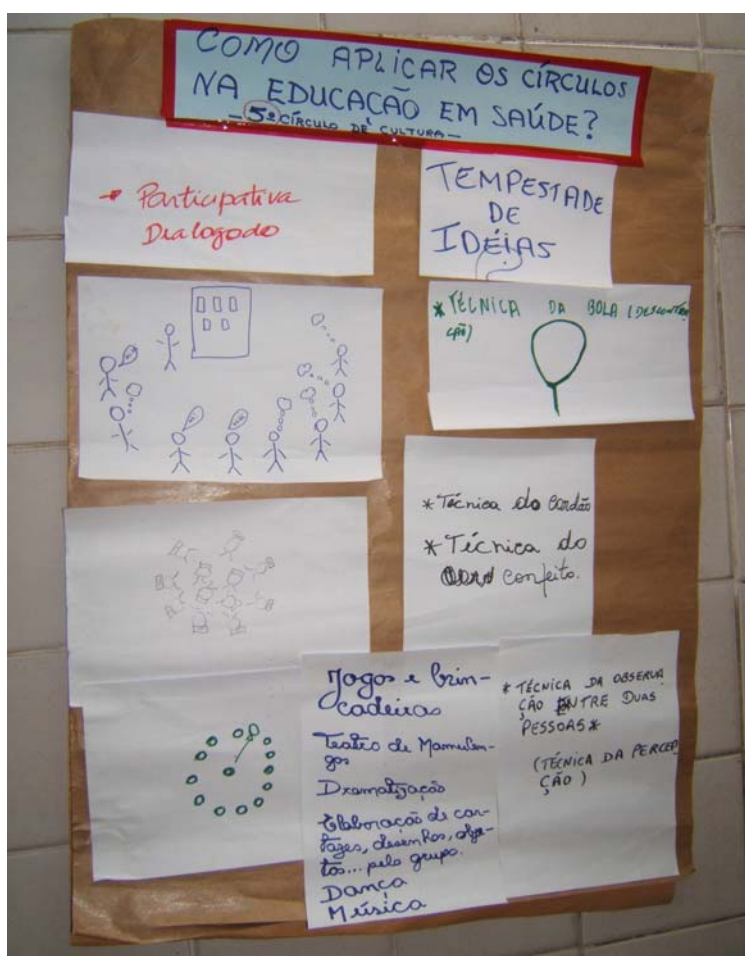 COMO APLICAR OS CÍRCULOS
NA EDUCAÇÃO EM SAÚDE?
- 5º CÍRCULO DE CULTURA -
→ Participativa
Dialogodo
TEMPESTADE
DE
IDÉIAS
* TÉCNICA DA BOLA (DESCONTRA
ÇÃO)
* Técnica do Cordão
* Técnica do
confeito.
Jogos e brin-
cadeiras
Teatro de Mamulen-
gos
Dramatização
Elaboração de car-
tazes, desenhos, obje-
tos... pelo grupo.
Dança
Música
* TÉCNICA DA OBSERVA
ÇÃO ENTRE DUAS
PESSOAS *
(TÉCNICA DA PERCEP
ÇÃO)